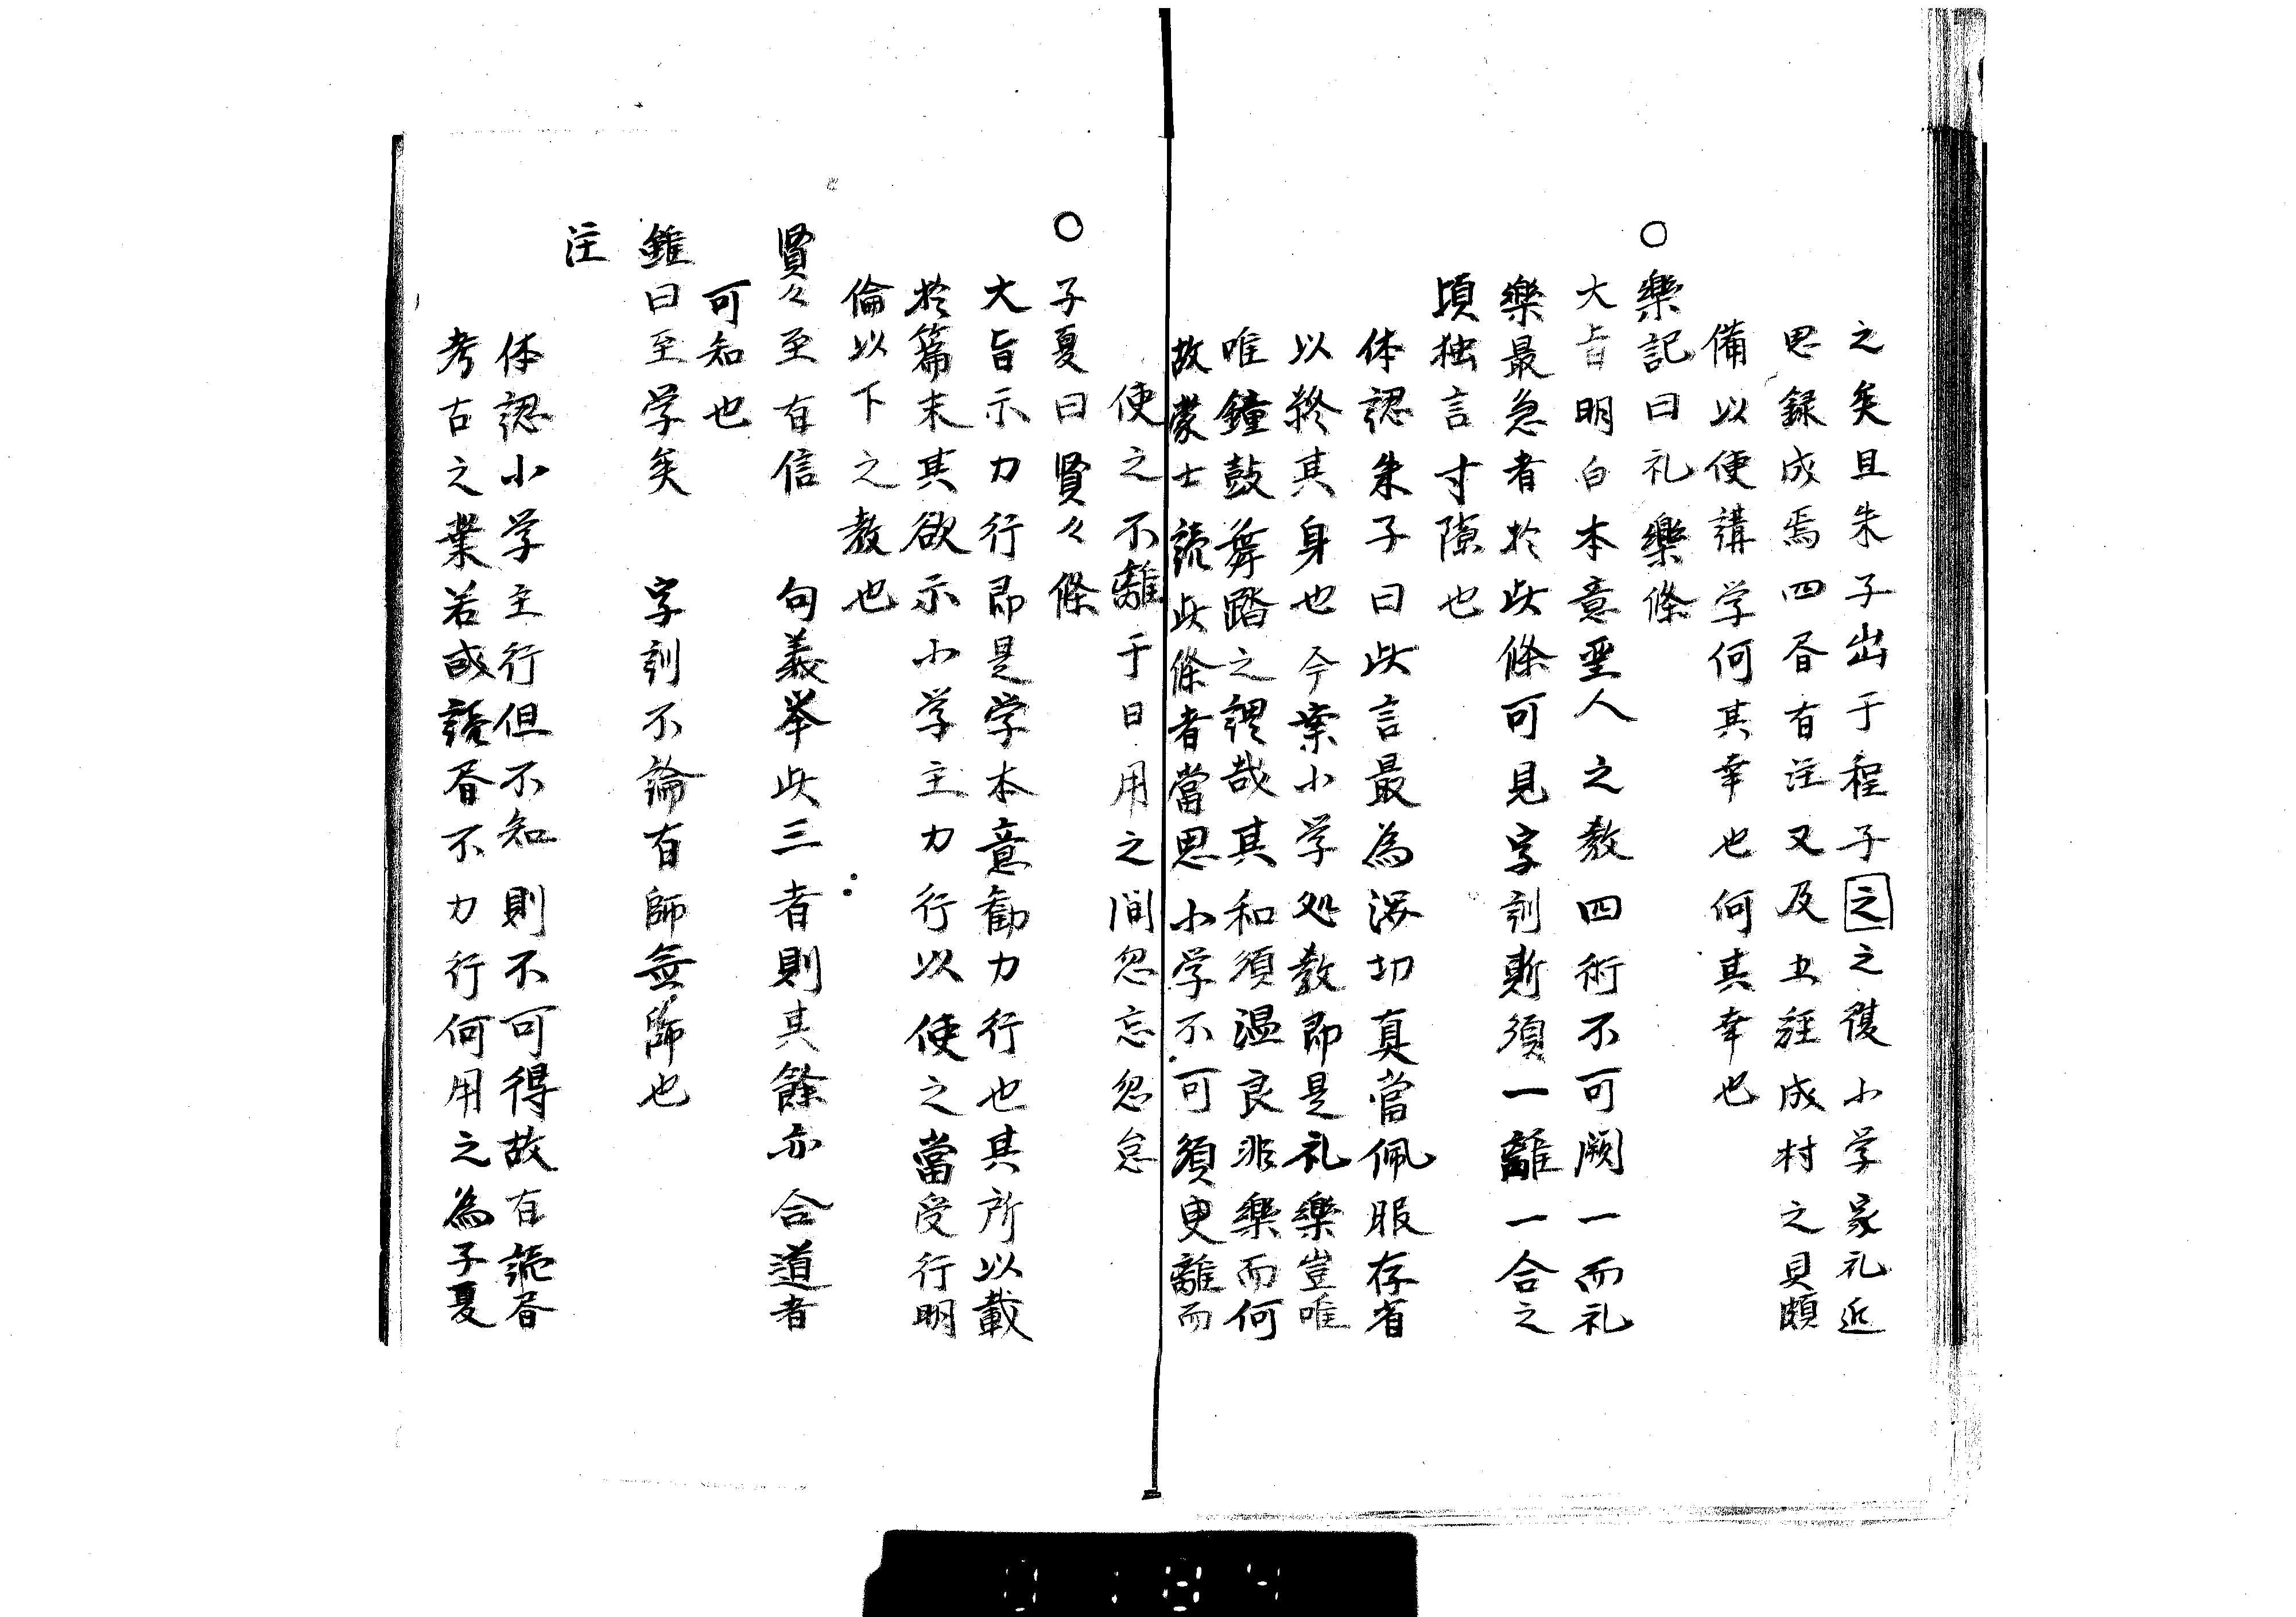 之矣且朱子出于程子之之後小学家礼近
思録成焉四昏有注又及五経成材之具頗
備以便講学何其幸也何其幸也
○楽記曰礼樂條
大旨明白本意聖人之教四術不可闕一而礼
樂最急者於此條可見字訓斯須一離一合之
頃独言寸隙也
体認朱子曰此言最為深切真當佩服存省
以終其身也今案小学処教即是礼樂豈唯
唯鐘鼓舞踏之謂哉其和須温良非樂而何
故蒙士読此條者當思小学不可須臾離而
使之不離于日用之間忽忘忽怠
○子夏曰賢々條
大旨示力行即是学本意勧力行也其所以載
於篇末其欲示小学主力行以使之當受行明
倫以下之教也
賢々至有信　句義挙此三者則其餘亦合道者
可知也
雖曰至学矣　字訓不論有師無師也
注
体認小学主行但不知則不可得故有読昏
考古之業若或読昏不力行何用之為子夏